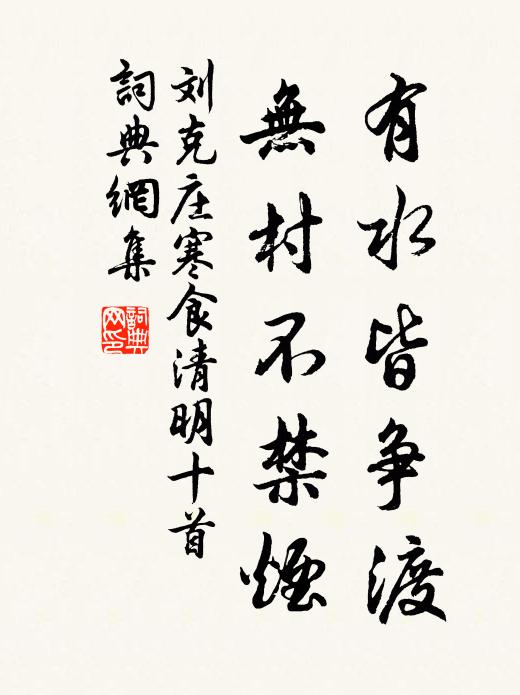 有水皆争渡
無村不禁煙
刘克庄寒食清明十首
詞典網集
詞典网印